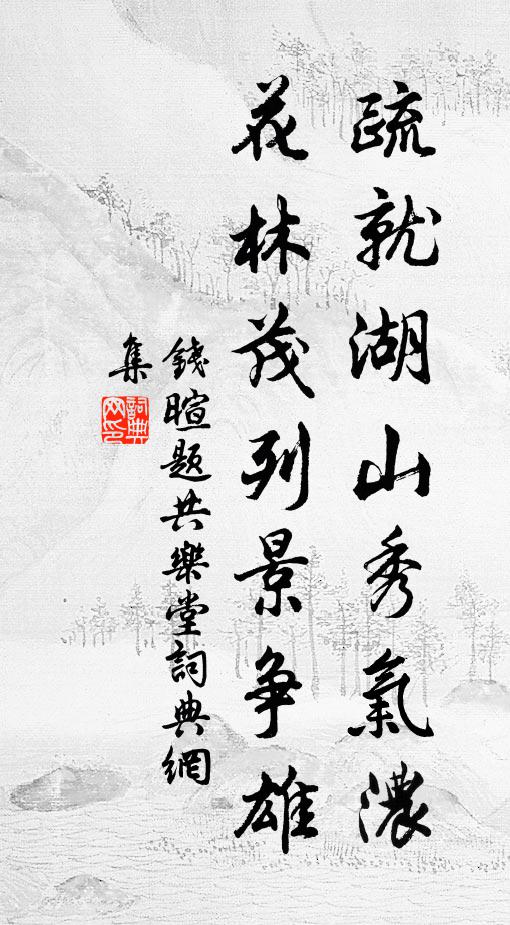 疏就湖山秀氣濃
花林茂列景争雄
錢暄題共樂堂詞典網
集
詞典
网印